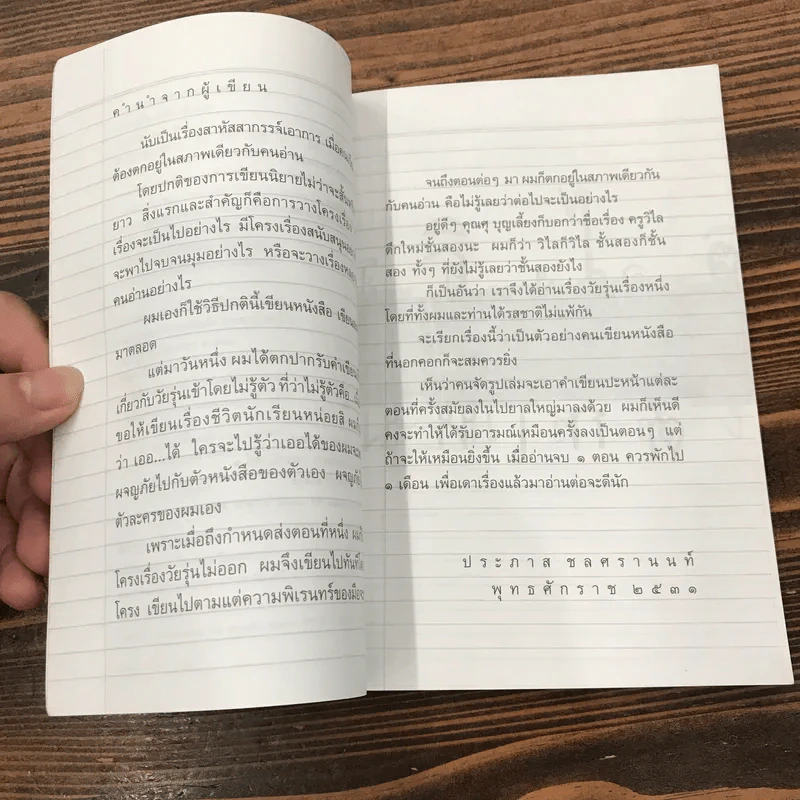 คำนำจากผู้เขียน
นับเป็นเรื่องสาหัสสากรรจ์เอาการ เมื่อ
ต้องตกอยู่ในสภาพเดียวกับคนอ่าน
โดยปกติของการเขียนนิยายไม่ว่าจะสั้น
ยาว สิ่งแรกและสำคัญก็คือการวางโครงเรื่อง
เรื่องจะเป็นไปอย่างไร มีโครงเรื่องสนับสนุน
จะพาไปจบจนมุมอย่างไร หรือจะวางเรื่อง
คนอ่านอย่างไร
ผมเองก็ใช้วิธีปกตินี้เขียนหนังสือ
มาตลอด
แต่มาวันหนึ่ง ผมได้ตกปากรับคำเขียน
เกี่ยวกับวัยรุ่นเข้าโดยไม่รู้ตัว ที่ว่าไม่รู้ตัวคือ
ขอให้เขียนเรื่องชีวิตนักเรียนหน่อยสิ
ว่า เออ...ได้ ใครจะไปรู้ว่าเออได้ของผมจะ
ผจญภัยไปกับตัวหนังสือของตัวเอง
ตัวละครของผมเอง
เพราะเมื่อถึงกำหนดส่งตอนที่หนึ่ง
โครงเรื่องวัยรุ่นไม่ออก ผมจึงเขียนไปทันที
โครง เขียนไปตามแต่ความพิเรนทร์ของมือ
จนถึงตอนต่อๆ มา ผมก็ตกอยู่ในสภาพเดียวกัน
กับคนอ่าน คือไม่รู้เลยว่าต่อไปจะเป็นอย่างไร
อยู่ดีๆ คุณศุ บุญเลี้ยงก็บอกว่าชื่อเรื่อง ครูวิไล
ตึกใหม่ชั้นสองนะ ผมก็ว่า วิไลก็วิไล ชั้นสองก็ชั้น
สอง ทั้งๆ ที่ยังไม่รู้เลยว่าชั้นสองยังไง
ก็เป็นอันว่า เราจึงได้อ่านเรื่องวัยรุ่นเรื่องหนึ่ง
โดยที่ทั้งผมและท่านได้รสชาติไม่แพ้กัน
จะเรียกเรื่องนี้ว่าเป็นตัวอย่างคนเขียนหนังสือ
ที่นอกคอกก็จะสมควรยิ่ง
เห็นว่าคนจัดรูปเล่มจะเอาคำเขียนปะหน้าแต่ละ
ตอนที่ครั้งสมัยลงในไปยาลใหญ่มาลงด้วย ผมก็เห็นดี
คงจะทำให้ได้รับอารมณ์เหมือนครั้งลงเป็นตอนๆ แต่
ถ้าจะให้เหมือนยิ่งขึ้น เมื่ออ่านจบ ๑ ตอน ควรพักไป
๑ เดือน เพื่อเดาเรื่องแล้วมาอ่านต่อจะดีนัก
ประภาส ชลศรานนท์
พุทธศักราช ๒๕๓๑